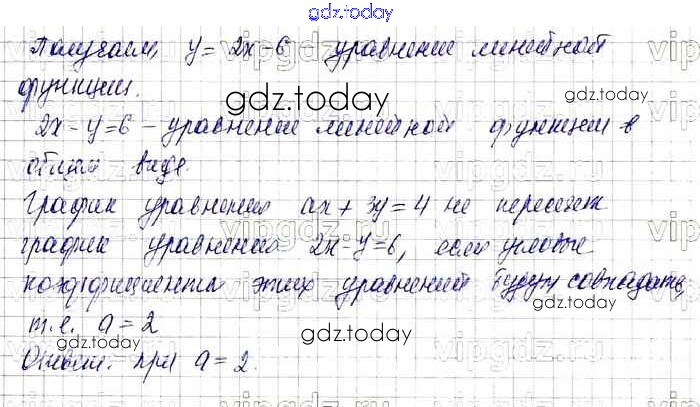 gdz.today
Получаем, y = 2x - 6 уравнение линейной
функции.
gdz.today
gdz.today
2x - y = 6 - уравнение линейной функции в
общем виде.
График уравнения ax + 3y = 4 не пересечет
график уравнения 2x - y = 6, если угловые
коэффициенты этих уравнений будут совпадать,
gdz.today
т.е. a = 2
gdz.today
Ответ: при a = 2.